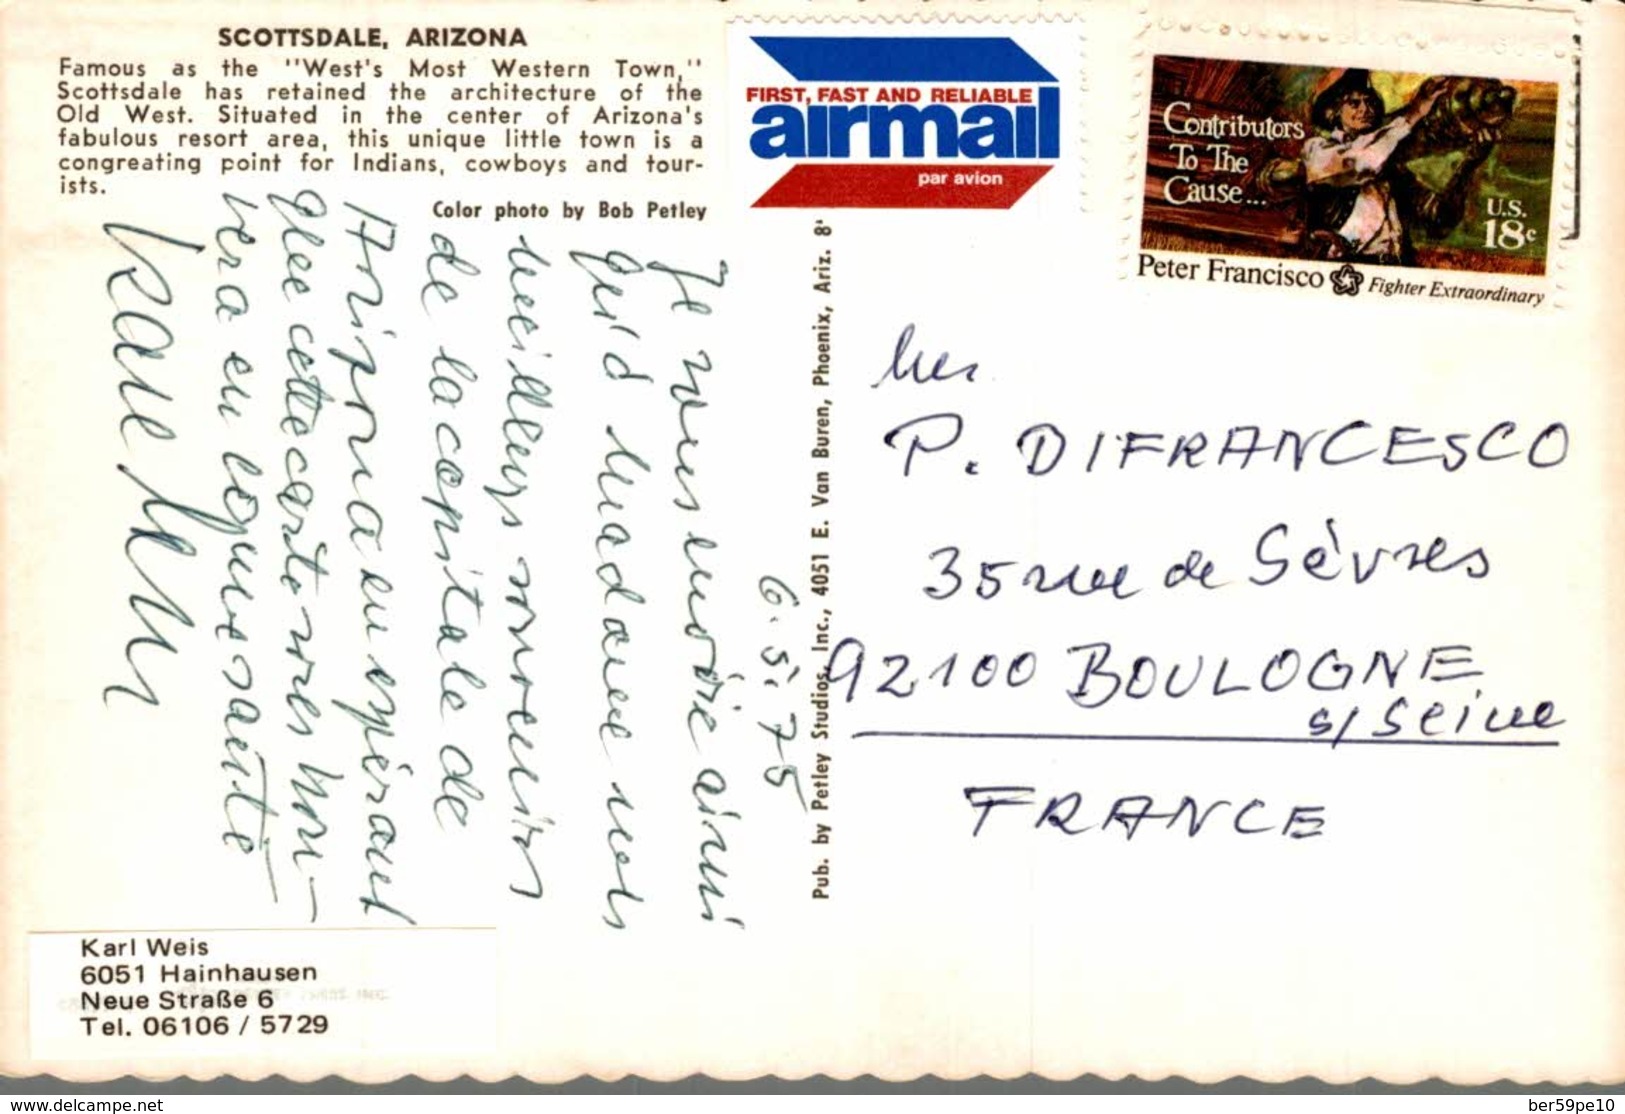 SCOTTSDALE, ARIZONA
Famous as the "West's Most Western Town,"
Scottsdale has retained the architecture of the
Old West. Situated in the center of Arizona's
fabulous resort area, this unique little town is a
congreating point for Indians, cowboys and tour-
ists.
Color photo by Bob Petley
FIRST, FAST AND RELIABLE
airmail
par avion
Contributors
To The
Cause...
U.S.
18c
Peter Francisco Fighter Extraordinary
Pub. by Petley Studios, Inc., 4051 E. Van Buren, Phoenix, Ariz. 8'
6.5.75
Je vous envoie ainsi
qu'à Madame mes
meilleurs souvenirs
de la capitale de
Arizona en espérant
que cette carte vous trou-
vera en bonne santé
Karl Weis
P. DIFRANCESCO
35 rue de Sèvres
92100 BOULOGNE
s/Seine
FRANCE
Karl Weis
6051 Hainhausen
Neue Straße 6
Tel. 06106 / 5729
www.delcampe.net
ber59pe10